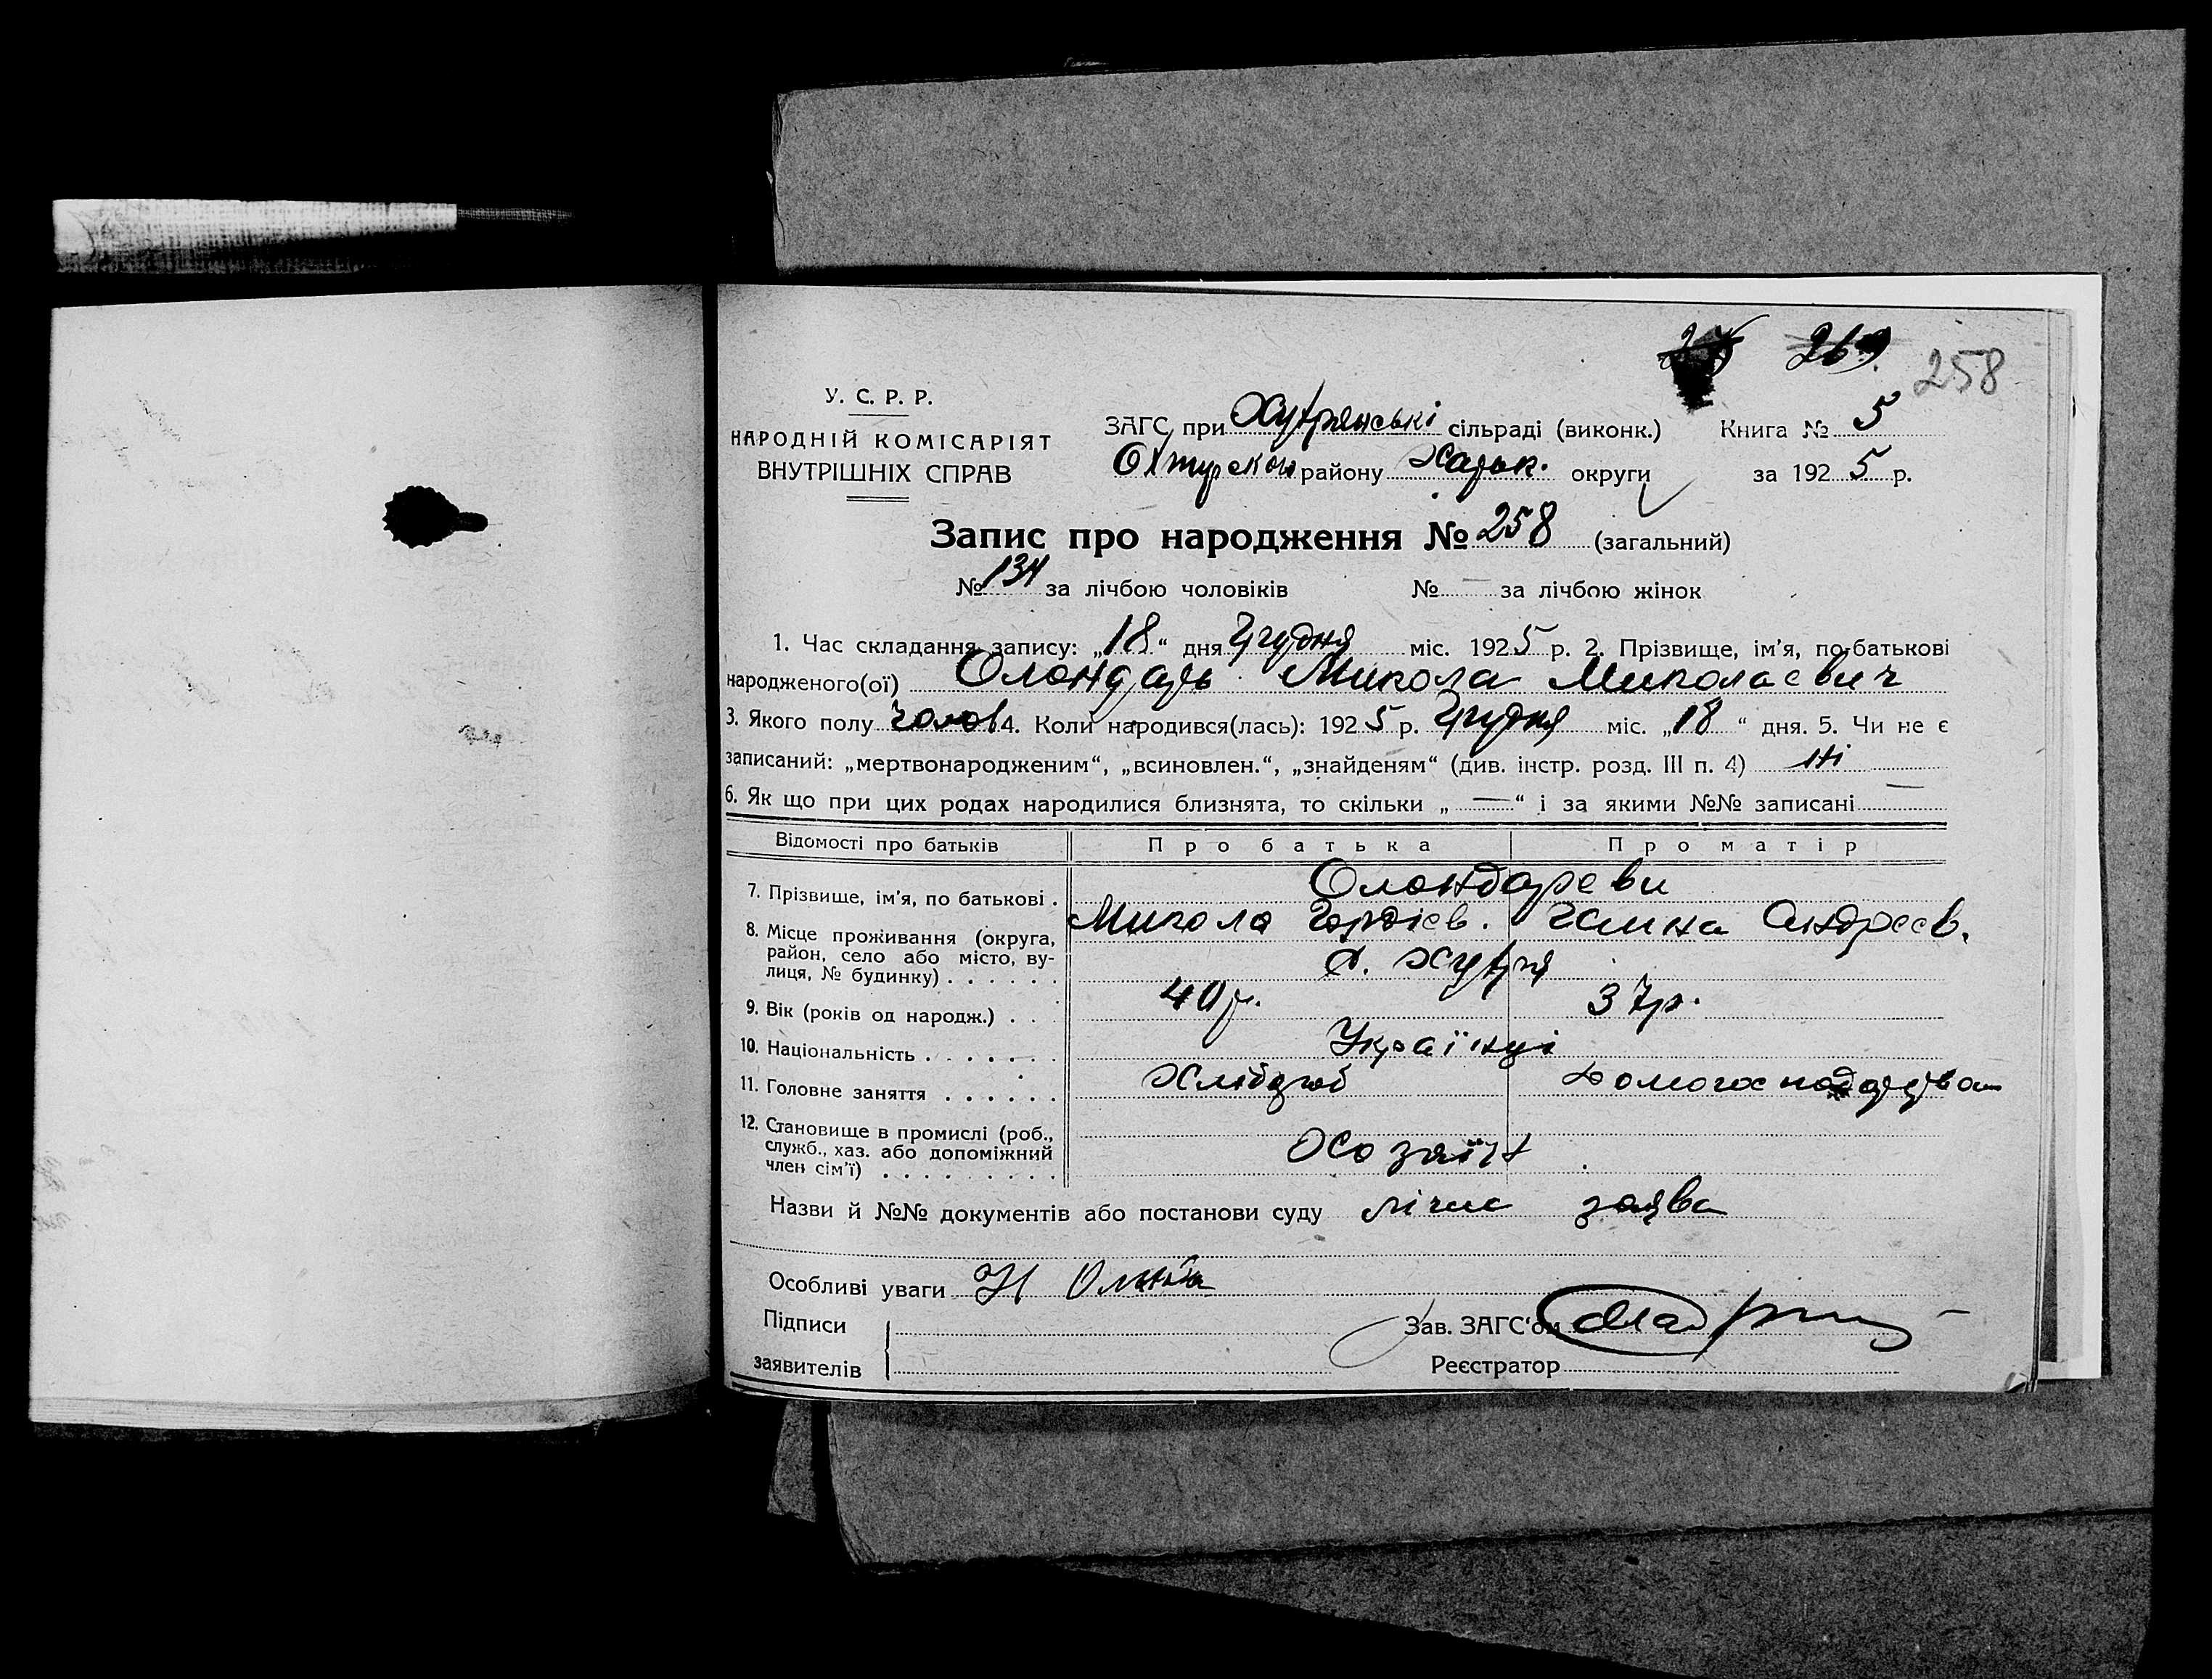 269 258
У. С. Р. Р.
НАРОДНІЙ КОМІСАРІЯТ
ВНУТРІШНІХ СПРАВ
ЗАГС при сільраді (виконк.) Книга № 5
району Харьк. округи за 1925 р.
Запис про народження № 258 (загальний)
№ 134 за лічбою чоловіків № — за лічбою жінок
1. Час складання запису: „18“ дня Грудня міс. 1925 р. 2. Прізвище, ім'я, по-батькові
народженого(ої) Олондарь Микола Миколаевич
3. Якого полу чолов 4. Коли народився(лась): 1925 р. Грудня міс. „18“ дня. 5. Чи не є
записаний: „мертвонародженим“, „всиновлен.“, „знайденям“ (див. інстр. розд. III п. 4) Ні
6. Як що при цих родах народилися близнята, то скільки „ — “ і за якими №№ записані —
Відомості про батьків Про батька Про матір
7. Прізвище, ім'я, по батькові . Олондареви
Микола Гордіев. Галина Андреев.
8. Місце проживання (округа,
район, село або місто, ву-
лиця, № будинку) . . . . . .
9. Вік (років од народж.) . . . 40 р. 37 р.
10. Національність . . . . . . . Українці
11. Головне заняття . . . . . . Хлібороб
12. Становище в промислі (роб.,
служб., хаз. або допоміжний
член сім'ї) . . . . . . . . . Хозяїн
Назви й №№ документів або постанови суду лічна заява
Особливі уваги
Підписи
заявителів
Зав. ЗАГС'ом
Реєстратор